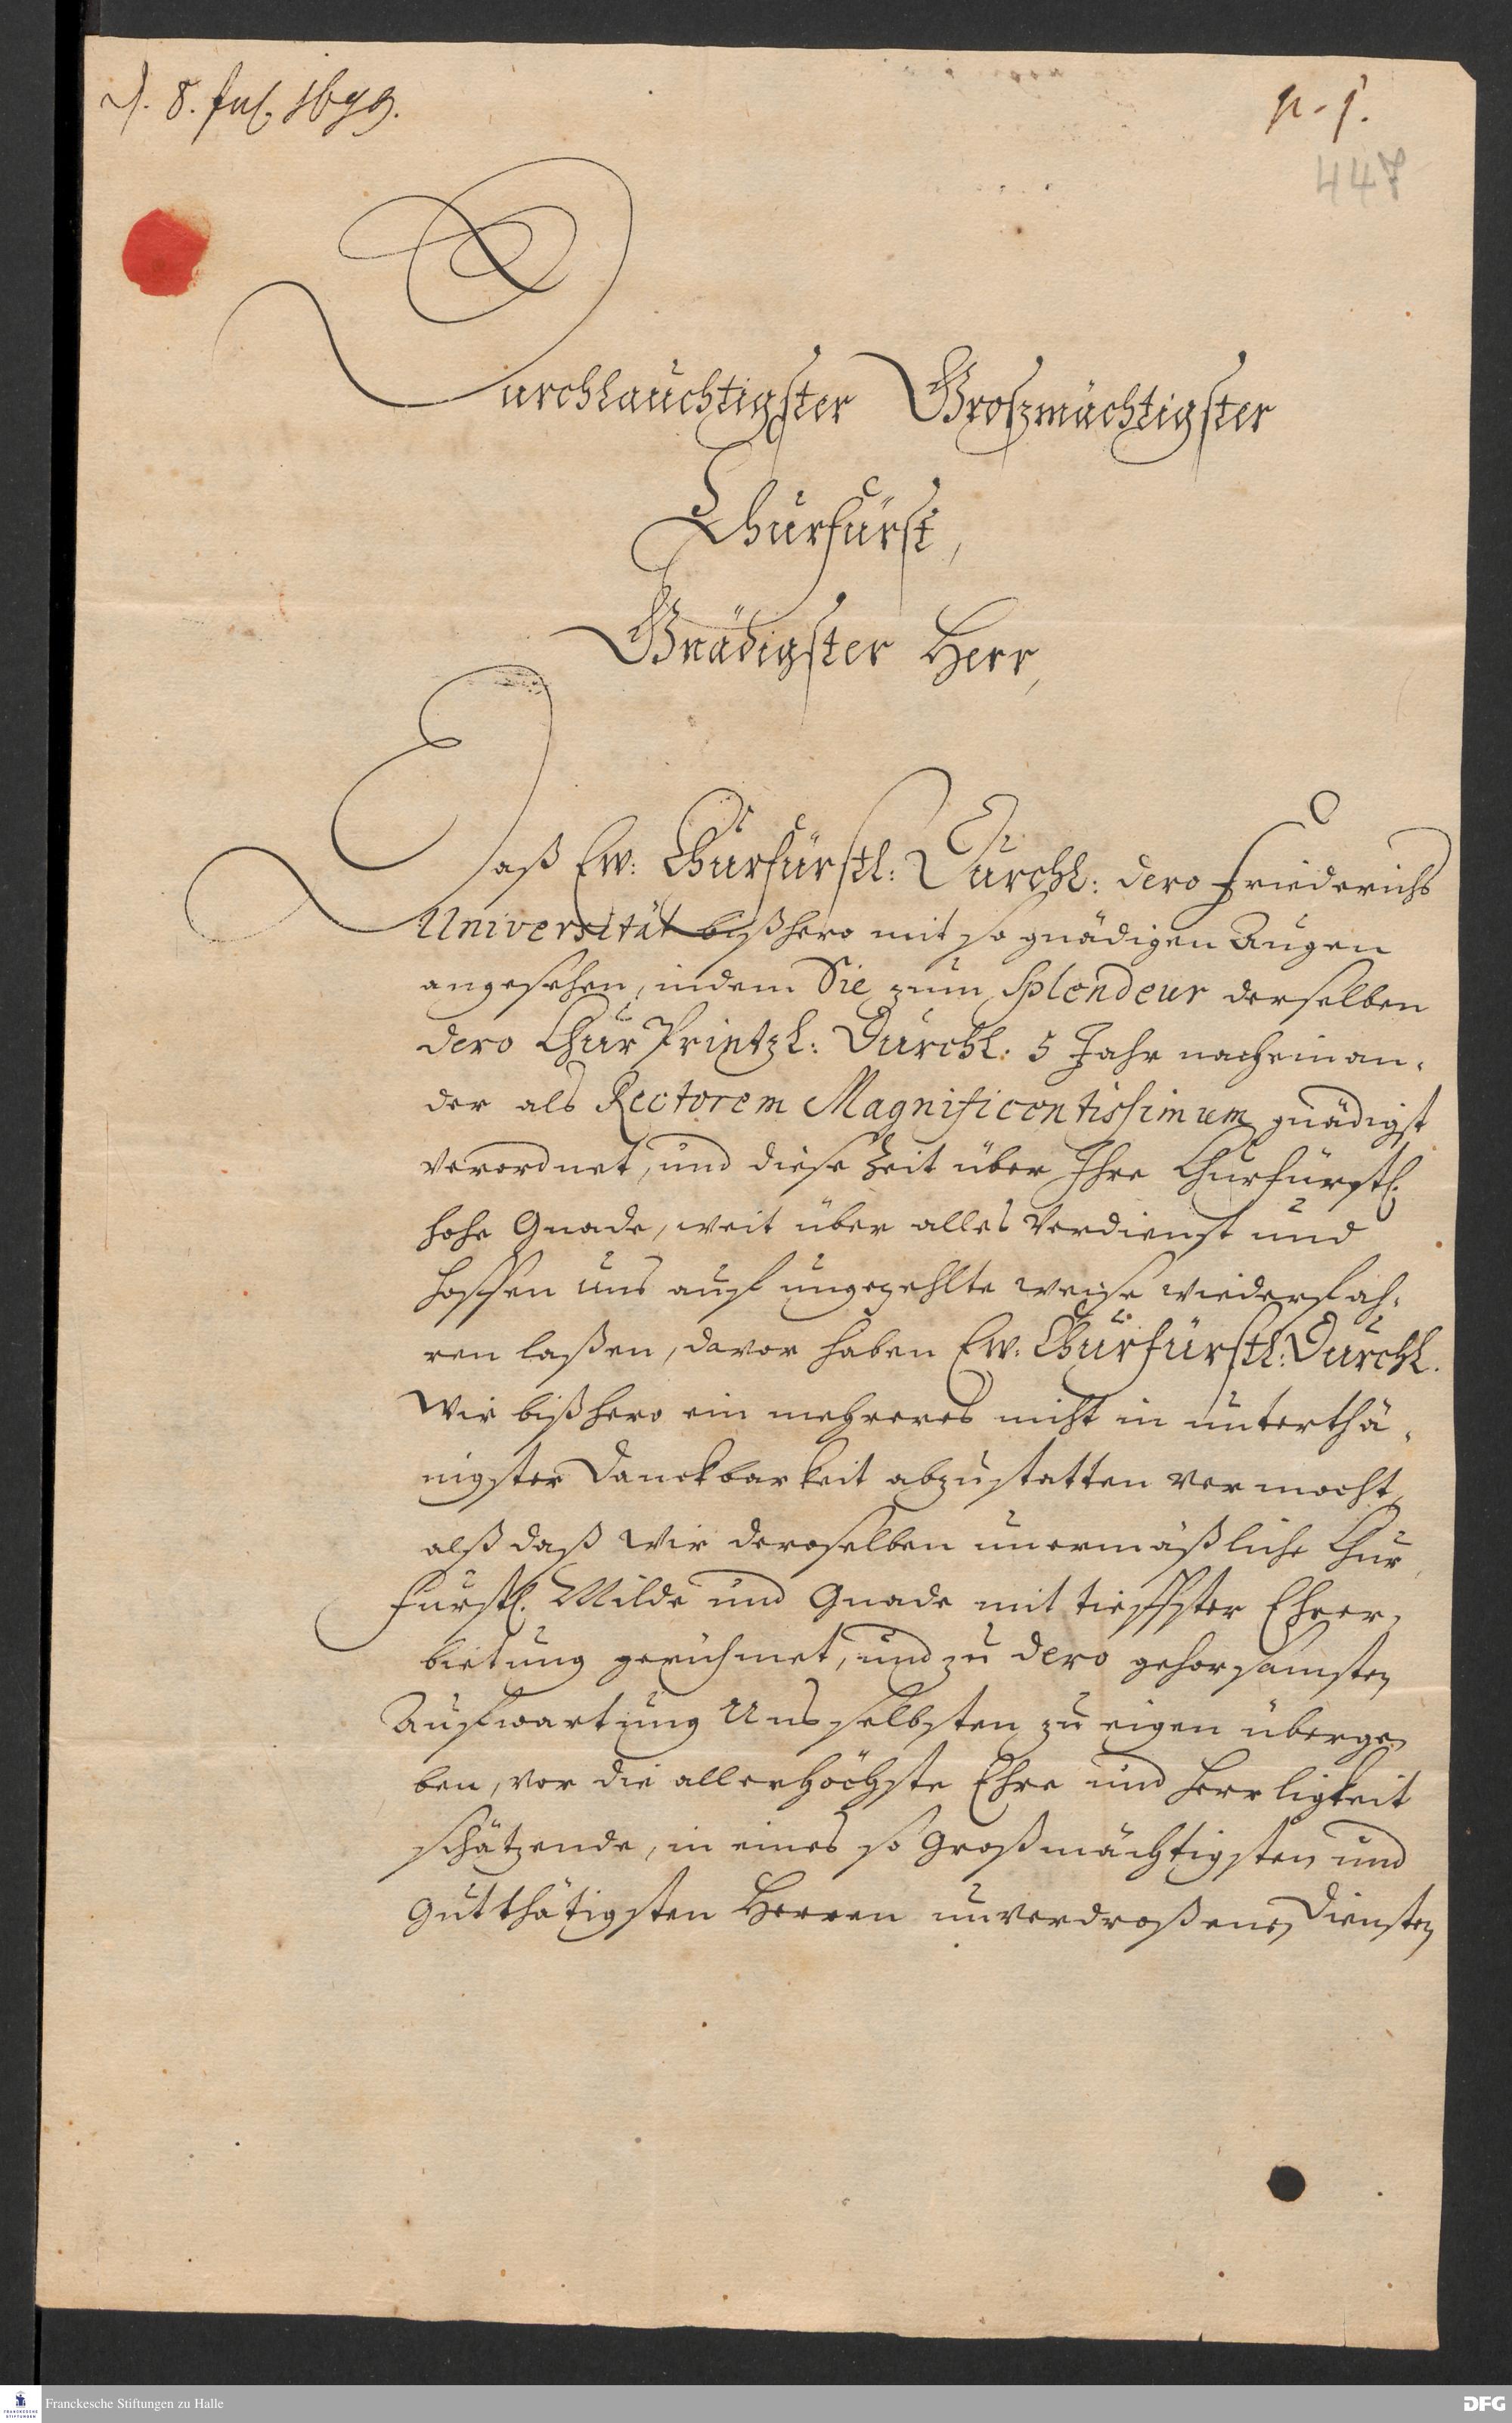 d. 8. Jul. 1699.
n. j.
447
Durchlauchtigster Großmächtigster
Churfürst,
Gnädigster Herr,
Daß Ew: Churfürstl: Durchl: dero Friederichs
Universität bißhero mit so gnädigen Augen
angesehen, indem Sie zum Splendeur derselben
dero ChurPrintzl: Durchl: 5 Jahr nacheinan-
der als Rectorem Magnificentissimum gnädigst
verordnet, und diese Zeit über Ihre Churfürstl.
hohe Gnade, weit über alles Verdienst und
hoffen uns auf ungezehlte weise wiederfah-
ren laßen, davor haben Ew: Churfürstl: Durchl.
Wir bißhero ein mehreres nicht in unterthä-
nigster Danckbarkeit abzustatten vermocht,
alß daß Wir deroselben unermäßliche Chur-
fürstl. Milde und Gnade mit tieffster Ehrer-
bietung gerühmet, und zu dero gehorsamsten
Aufwartung Uns selbsten zu eigen überge-
ben, vor die allerhöchste Ehre und Herrligkeit
schätzende, in eines so Großmächtigsten und
Gutthätigsten Herren unverdroßenen Diensten
Franckesche Stiftungen zu Halle
FRANCKESCHE STIFTUNGEN
DFG